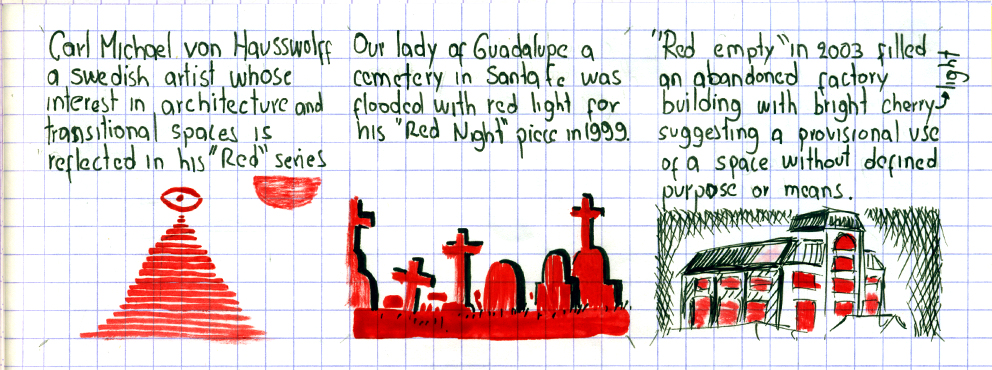 Carl Michael von Hausswolff
a swedish artist whose
interest in architecture and
transitional spaces is
reflected in his "Red" series
Our lady of Guadalupe a
cemetery in Santa Fe was
flooded with red light for
his "Red Night" piece in 1999.
"Red empty" in 2003 filled
an abandoned factory
building with bright cherry
light
suggesting a provisional use
of a space without defined
purpose or means.